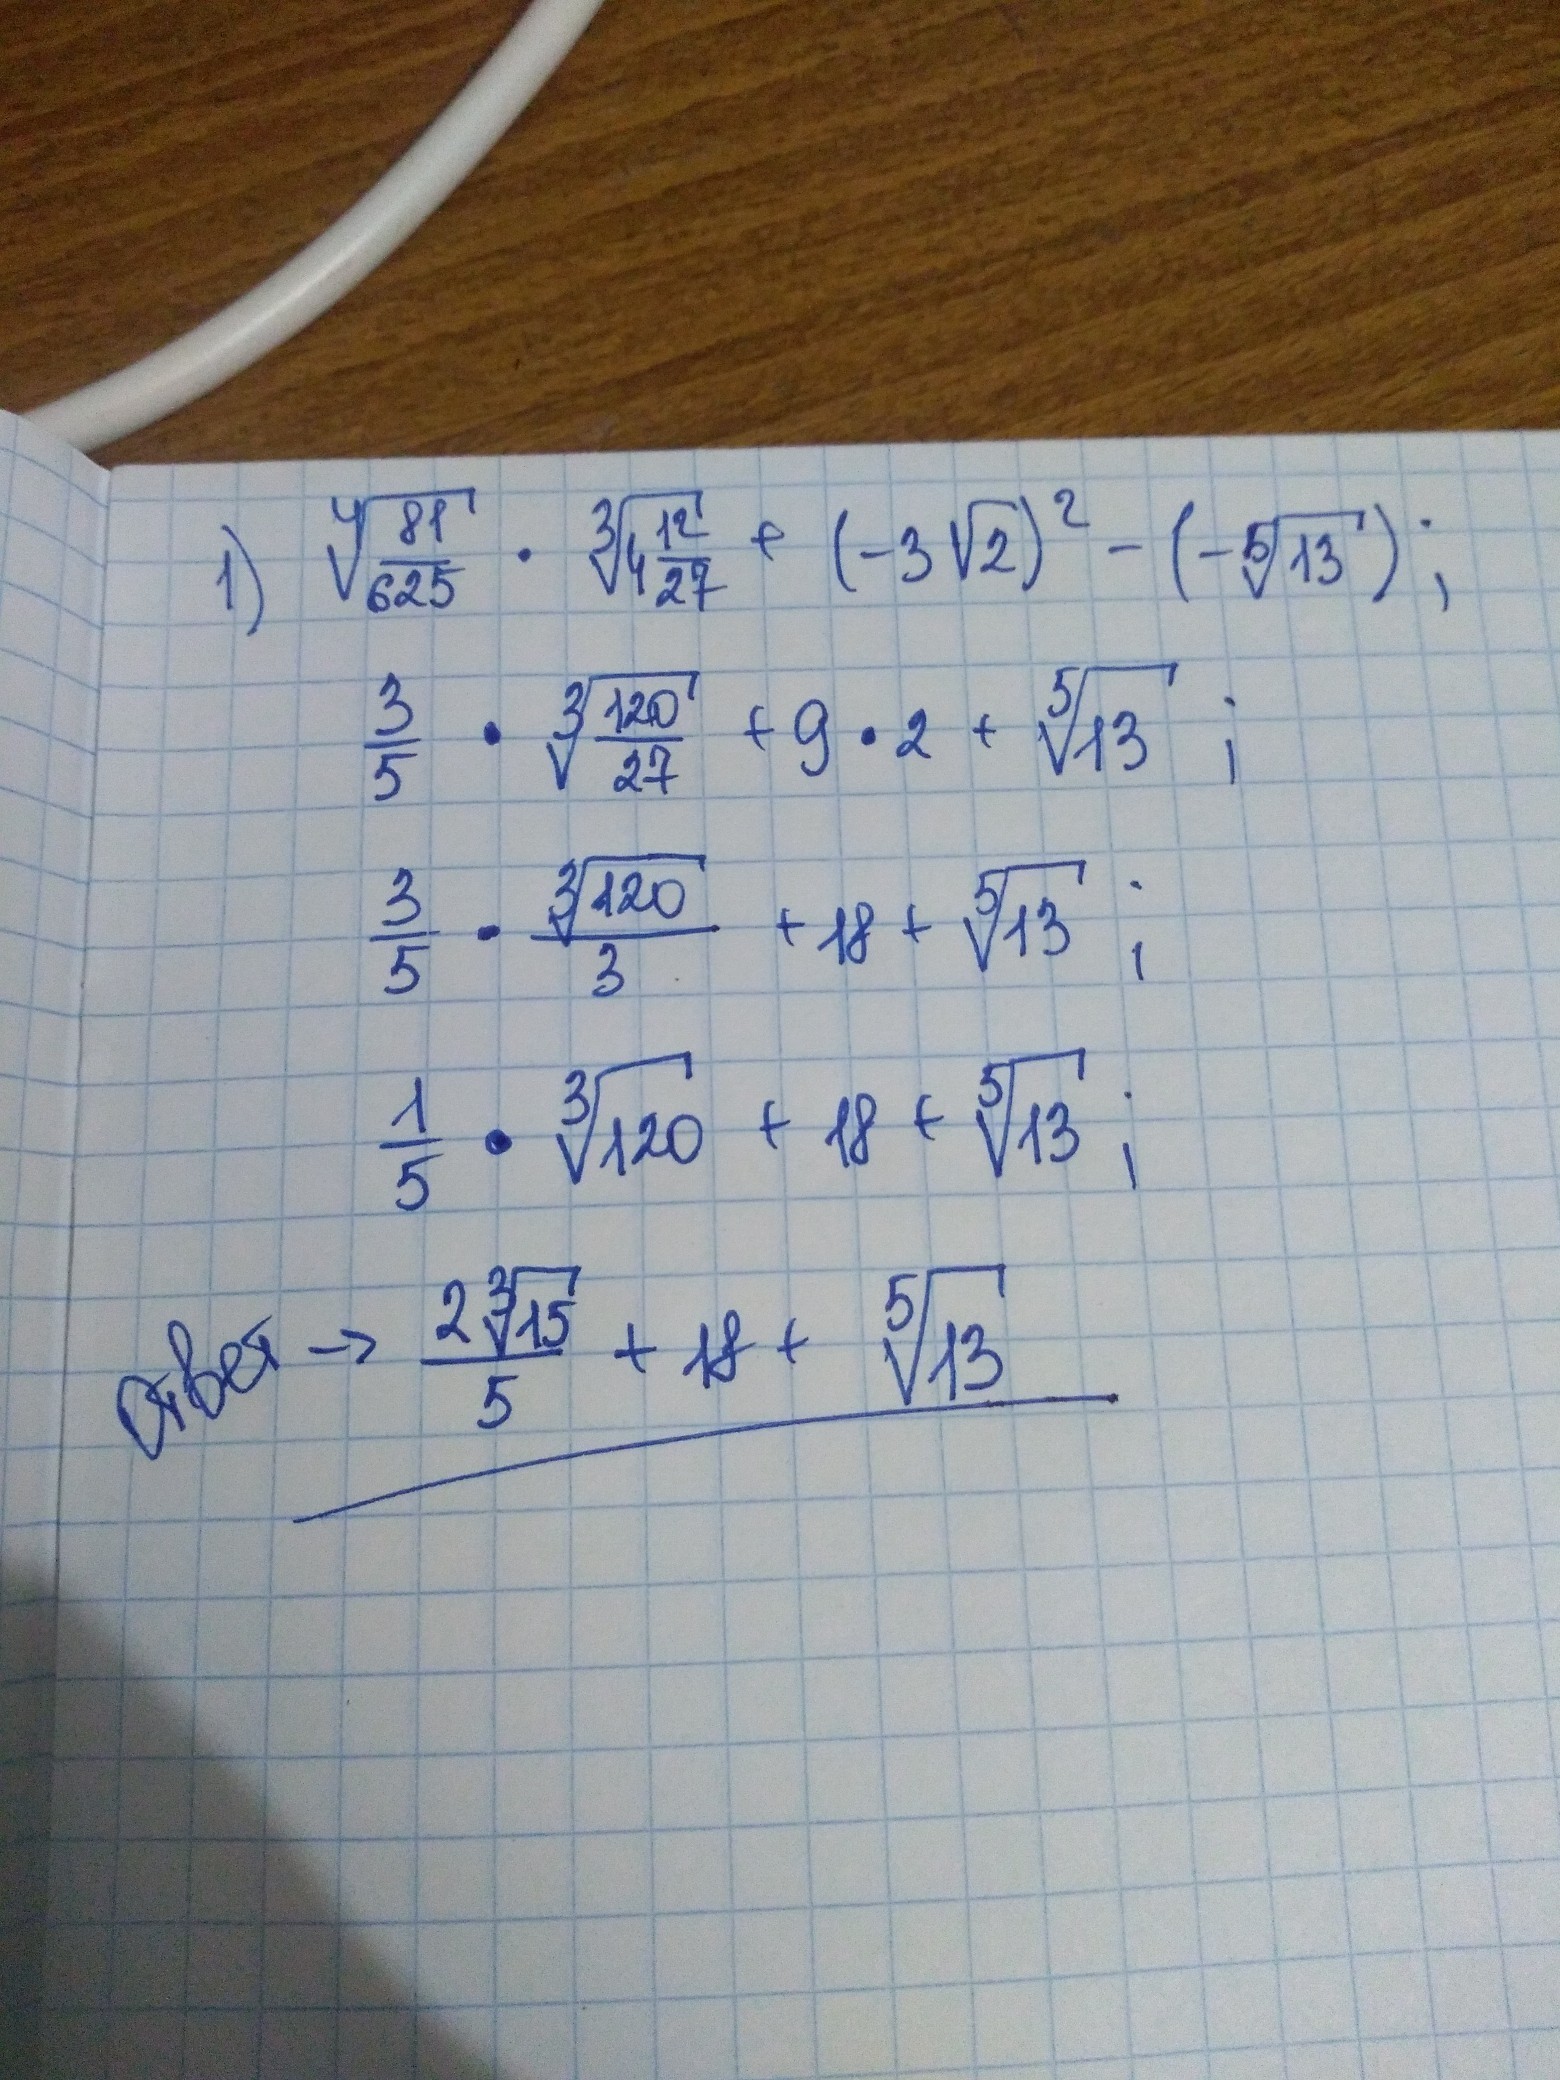 1) ∜(81/625) · ∛(4 12/27) + (-3√2)² - (-⁵√13);
3/5 · ∛(120/27) + 9·2 + ⁵√13;
3/5 · ∛120/3 + 18 + ⁵√13;
1/5 · ∛120 + 18 + ⁵√13;
Ответ → 2∛15/5 + 18 + ⁵√13